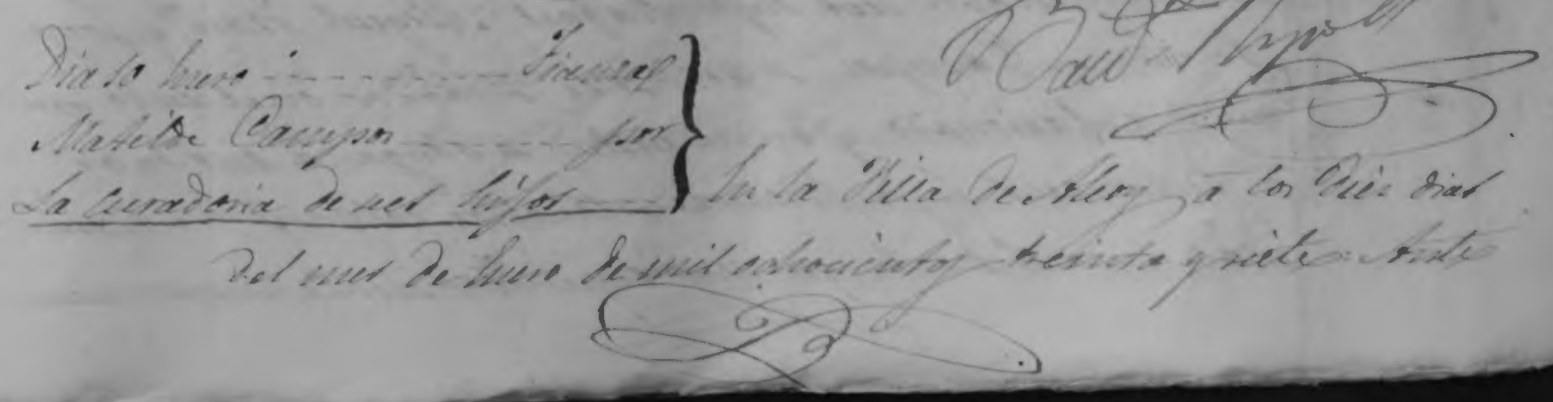 Dia 10 Enero - - - - - - - Fianza
Matilde Campos - - - - - - - por
La curadoria de sus hijos
En la Villa de Alcoy à los Diez dias
del mes de Enero de mil ochocientos treinta y siete = Ante